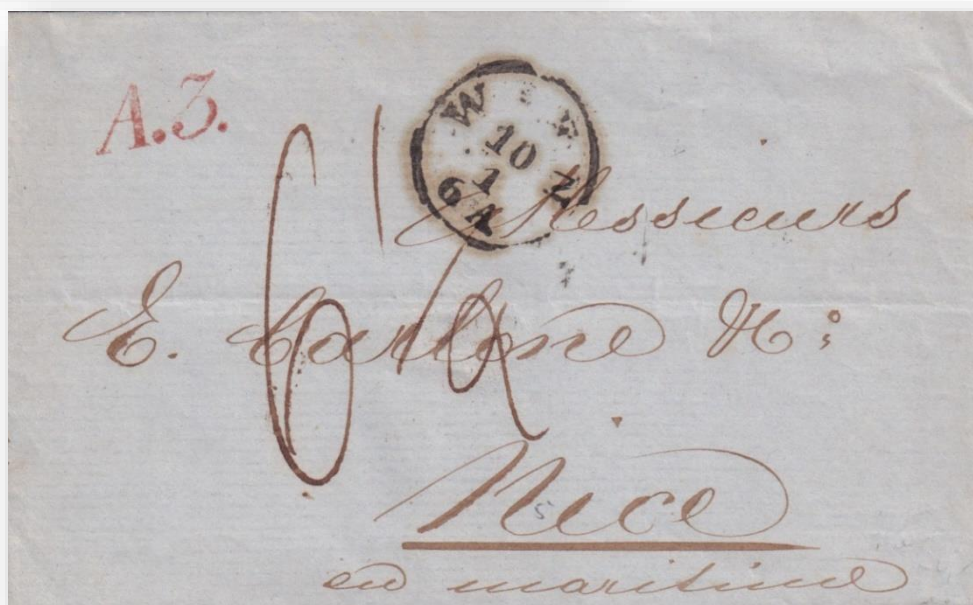 A.3.
WIEN
10
1
6 A
Messieurs
E. Carlone
Nice
en maritime